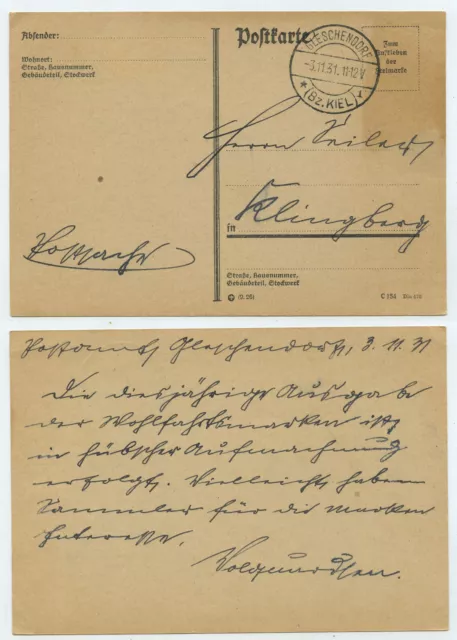 Absender:
Wohnort:
Straße, Hausnummer,
Gebäudeteil, Stockwerk
Postkarte
GLESCHENDORF
-3.11.31. 11-12V
* (Bz. KIEL) *
Zum
Aufkleben
der
Freimarke
Herrn Seilers
in Klingberg
Postsache
Straße, Hausnummer,
Gebäudeteil, Stockwerk
C 154 Din 476
Postamt Gleschendorf, 3.11.31
Die diesjährige Ausgabe
der Wohlfahrtsmarken ist
in hübscher Aufmachung
erfolgt. Vielleicht haben
Sammler für die Marken
Interesse.
Volquardsen.